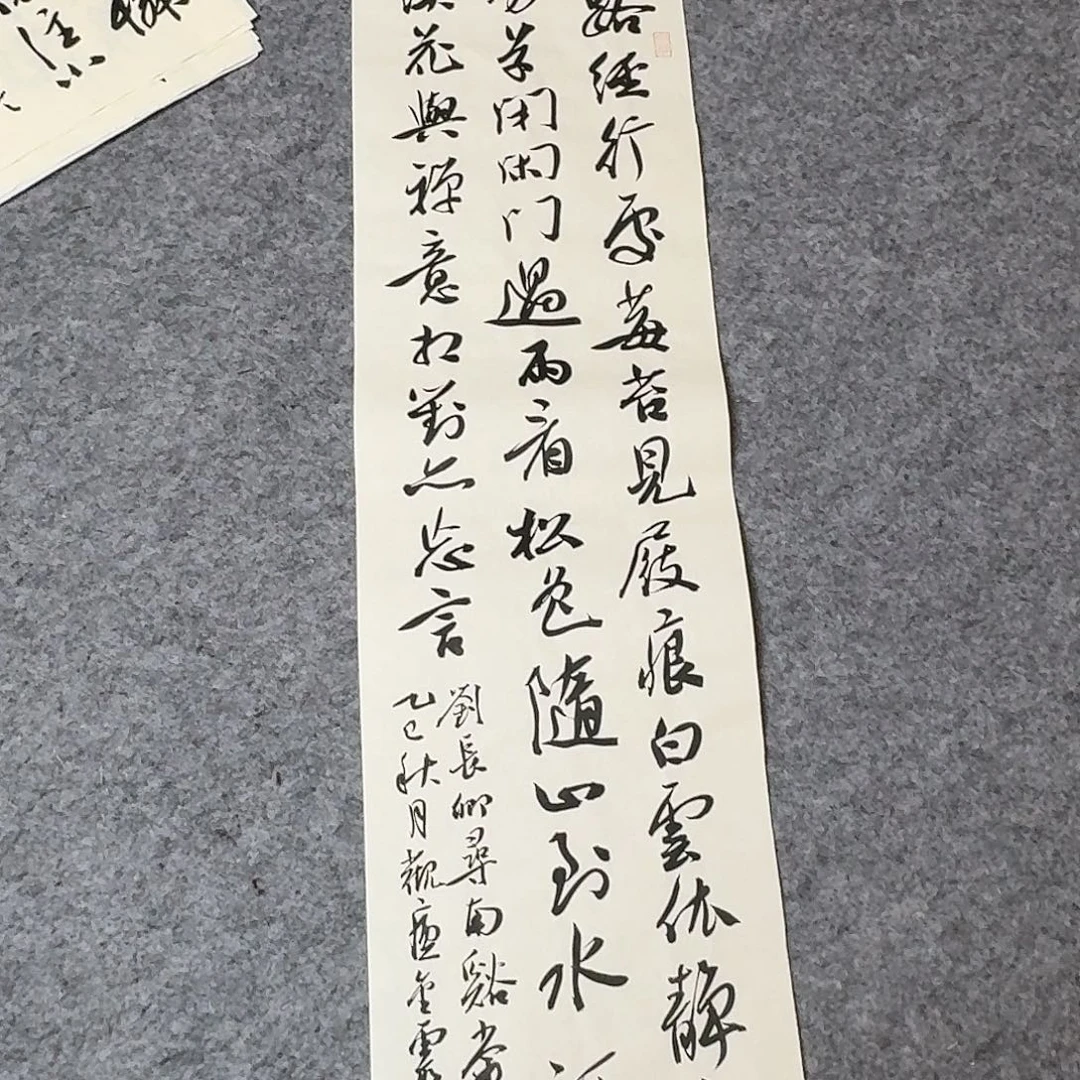 路經行處莓苔見屐痕白雲依靜
草閉閑门過雨看松色隨山到水
花與禪意相對亦忘言
劉長卿尋南谿常
乙巳秋月觀